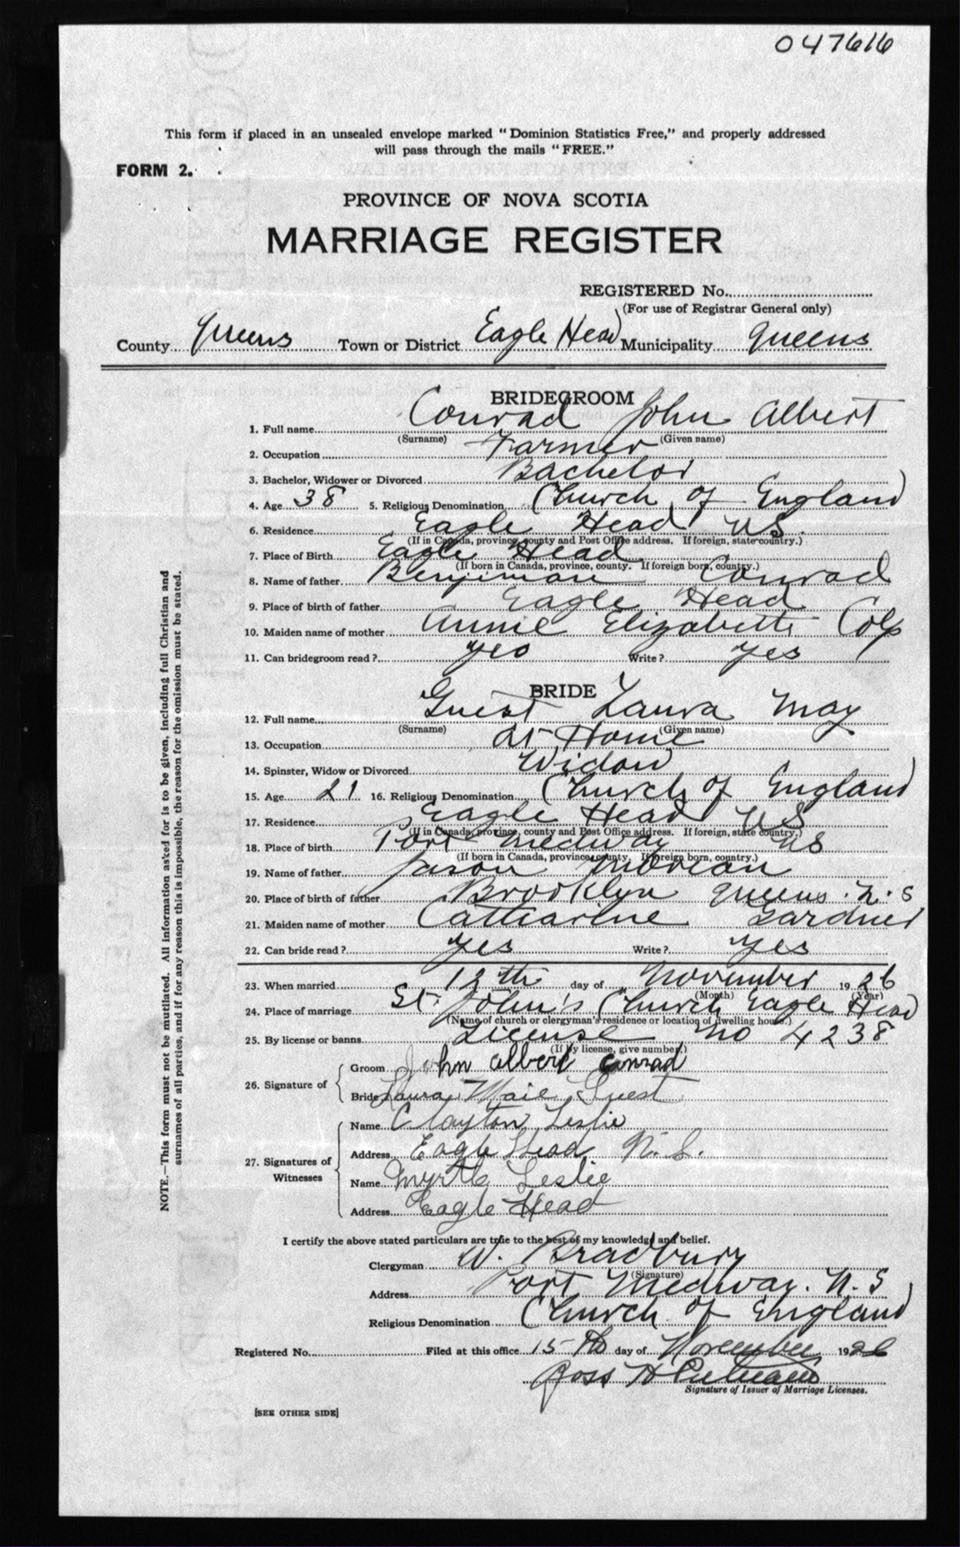 047616
This form if placed in an unsealed envelope marked "Dominion Statistics Free," and properly addressed
will pass through the mails "FREE."
FORM 2.
PROVINCE OF NOVA SCOTIA
MARRIAGE REGISTER
REGISTERED No.
(For use of Registrar General only)
County Queens Town or District Eagle Head Municipality Queens
BRIDEGROOM
1. Full name Conrad John Albert
(Surname) (Given name)
2. Occupation Farmer
3. Bachelor, Widower or Divorced Bachelor
4. Age 38 5. Religious Denomination Church of England
6. Residence Eagle Head NS
(If in Canada, province, county and Post Office address. If foreign, state country.)
7. Place of Birth Eagle Head
(If born in Canada, province, county. If foreign born, country.)
8. Name of father Benjiman Conrad
9. Place of birth of father Eagle Head
10. Maiden name of mother Annie Elizabeth Colp
11. Can bridegroom read? yes Write? yes
BRIDE
12. Full name Guest Laura May
(Surname) (Given name)
13. Occupation at Home
14. Spinster, Widow or Divorced Widow
15. Age 21 16. Religious Denomination Church of England
17. Residence Eagle Head NS
(If in Canada, province, county and Post Office address. If foreign, state country.)
18. Place of birth Port Medway NS
(If born in Canada, province, county. If foreign born, country.)
19. Name of father Jason
20. Place of birth of father Brooklyn Queens N.S
21. Maiden name of mother Catharine Gardner
22. Can bride read? yes Write? yes
23. When married 13th day of November 1926
(Month) (Year)
24. Place of marriage St. John's Church Eagle Head
(Name of church or clergyman's residence or location of dwelling house.)
25. By license or banns License no 4238
(If by license, give number)
26. Signature of
Groom John Albert Conrad
Bride Laura Maie Guest
27. Signatures of Witnesses
Name Clayton Leslie
Address Eagle Head N.S.
Name Myrtle Leslie
Address Eagle Head
I certify the above stated particulars are true to the best of my knowledge and belief.
Clergyman W. Bradbury
(Signature)
Address Port Medway. N.S
Religious Denomination Church of England
Registered No. Filed at this office 15th day of November 1926
Ross H
Signature of Issuer of Marriage Licenses.
[SEE OTHER SIDE]
NOTE.—This form must not be mutilated. All information asked for is to be given, including full Christian and
surnames of all parties, and if for any reason this is impossible, the reason for the omission must be stated.